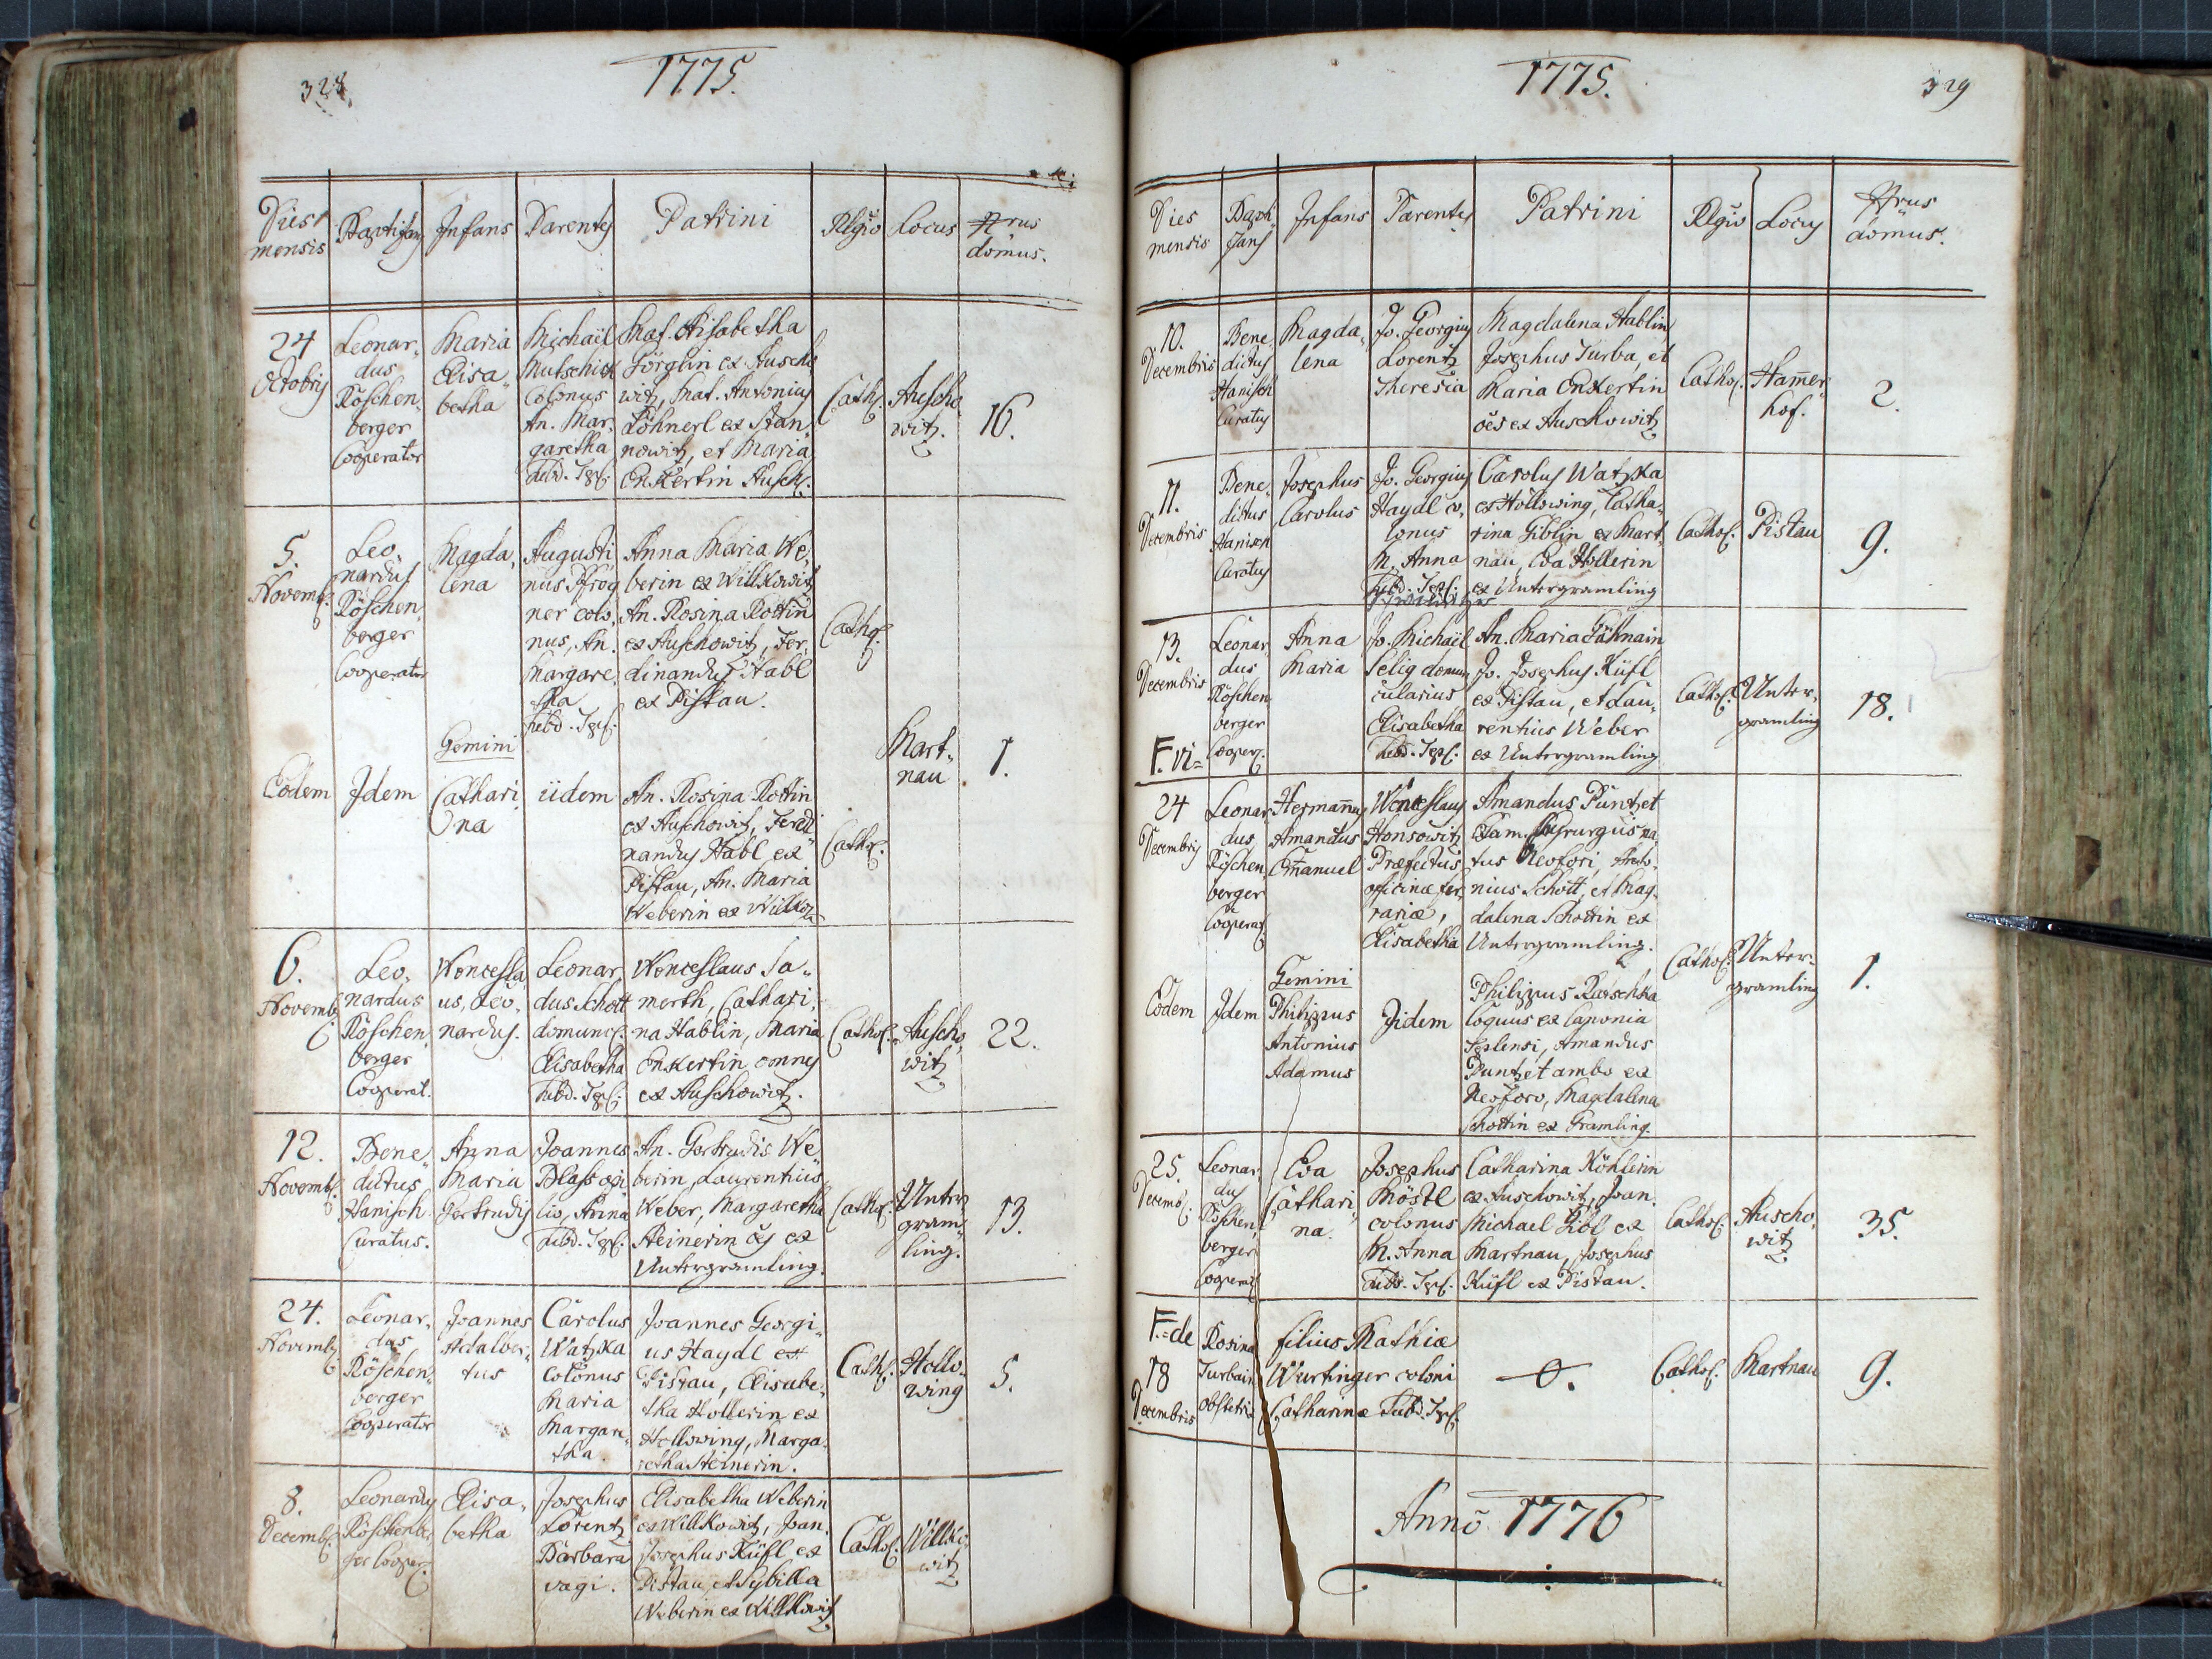 328
1775.
Dies mensis
Baptisans
Infans
Parentes
Patrini
Religio
Locus
Nrus domus.
24 Octobris
Leonardus Röschenberger Cooperator
Maria Elisabetha
Michaël Mutschik Colonus An. Margaretha subd. Tepl.
Mat. Elisabetha
Görglin ex Auscho
witz, Mat. Antonius
Löhnerl ex Stan
nowitz, et Maria
Enkertin Ausch.
Cathol.
Auschowitz.
16.
5. Novemb.
Leonardus Röschenberger Cooperator
Magdalena
Augustinus Frögner colonus, An. Margaretha subd. Tepl.
Anna Maria We
berin ex Willkowitz
An. Rosina Rottin
ex Auschowitz, Fer
dinandus Habl
ex Pistau.
Cathol.
Gemini
Martnau
1.
Eodem
Idem
Catharina
iidem
An. Rosina Rottin
ex Auschowitz, Ferdi
nandus Habl ex
Pistau, An. Maria
Weberin ex Willkow
Cathol.
6. Novemb.
Leonardus Röschenberger Cooperat.
Wenceslaus, Leonardus.
Leonardus Schott domunc. Elisabetha subd. Tepl.
Wenceslaus Sa
merth, Cathari
na Hablin, Maria
Enkertin omnes
ex Auschowitz.
Cathol.
Auschowitz
22.
12. Novemb.
Benedictus Hanisch Curatus.
Anna Maria Gertrudis
Joannes Blass opilio, Anna subd. Tepl.
An. Gertrudis We
berin, Laurentius
Weber, Margaretha
Steinerin oes ex
Untergramling.
Cathol.
Untergramling.
13.
24. Novemb.
Leonardus Röschenberger Cooperator
Joannes Adalbertus
Carolus Watzka Colonus Maria Margaretha.
Joannes Georgi
us Haydl ex
Pistau, Elisabe
tha Hollerin ex
Hollowing, Marga
retha Steinerin.
Cathol.
Hollowing
5.
8. Decemb.
Leonardus Röschenberger Cooper.
Elisabetha
Josephus Lorentz Barbara vagi.
Elisabetha Weberin
ex Willkowitz, Joan.
Josephus Küfl ex
Pistau, et Sybilla
Weberin ex Willkowitz
Cathol.
Willkowitz
1775.
329
Dies mensis
Baptisans
Infans
Parentes
Patrini
Religio
Locus
Nrus domus.
10. Decembris
Benedictus Hanisch Curatus
Magdalena
Jo. Georgius Lorentz Theresia
Magdalena Hablin
Josephus Turba, et
Maria Enkertin
oes ex Auschowitz
Cathol.
Hammerhof.
2.
11. Decembris
Benedictus Hanisch Curatus
Josephus Carolus
Jo. Georgius Haydl colonus M. Anna subd. Tepl.
Carolus Watzka
ex Hollowing, Catha
rina Giblin ex Mart
nau, Eva Hollerin
ex Untergramling
Cathol.
Pistau
9.
13. Decembris
Leonardus Röschenberger Cooper.
Anna Maria
Jo. Michaël Selig domuncularius Elisabetha subd. Tepl.
An. Maria Gähnain
Jo. Josephus Küfl
ex Pistau, et Lau
rentius Weber
ex Untergramling
Cathol.
Untergramling
18.
F. vi=
24 Decembris
Leonardus Röschenberger Cooperat.
Hermannus Amandus Emanuel
Wenceslaus Honsowitz Præfectus officinæ ferrariæ, Elisabetha
Amandus Puntzet
Exam. Chyrurgus na
tus Neofori, Anto
nius Schott, et Mag
dalena Schottin ex
Untergramling.
Cathol.
Untergramling
1.
Gemini
Eodem
Idem
Philippus Antonius Adamus
Iidem
Philippus Ratschka
Coquus ex Caponia
Teplensi, Amandus
Puntzet ambo ex
Neoforo, Magdalena
Schottin ex Gramling.
25. Decemb.
Leonardus Röschenberger Cooperat.
Eva Catharina.
Josephus Möstl colonus M. Anna subd. Tepl.
Catharina Köhlerin
ex Auschowitz, Joan.
Michael Gibl ex
Martnau, Josephus
Küfl ex Pistau.
Cathol.
Auschowitz
35.
F.=de
18 Decembris
Rosina Turbain obstetrix
filius Mathiæ
Wurtinger coloni
Catharinæ Subd. Tepl.
0.
Cathol.
Martnau
9.
Anno 1776